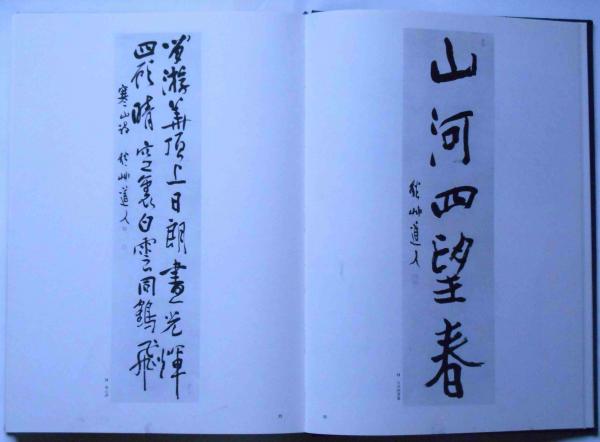 山河四望春
秋艸道人
閑游華頂上日朗晝光輝
四顧晴空裏白雲同鶴飛
寒山詩 秋艸道人